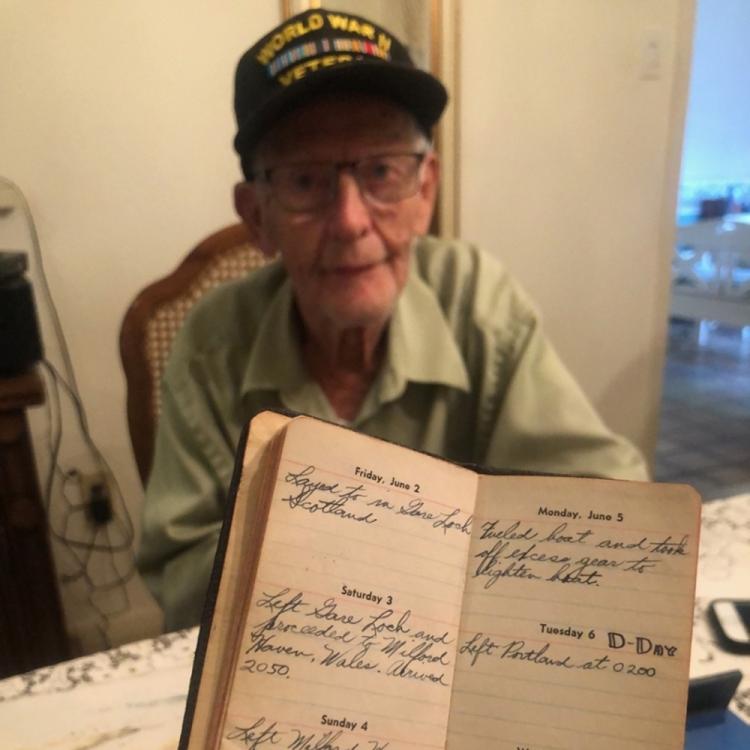 WORLD WAR II
VETERAN
Friday, June 2
Layed to in Gare Loch
Scotland
Saturday 3
Left Gare Loch and
proceeded to Milford
Haven, Wales. Arrived
2050.
Sunday 4
Left Milford
Monday, June 5
Fueled boat and took
off excess gear to
lighten boat.
Tuesday 6 D-DAY
Left Portland at 0200